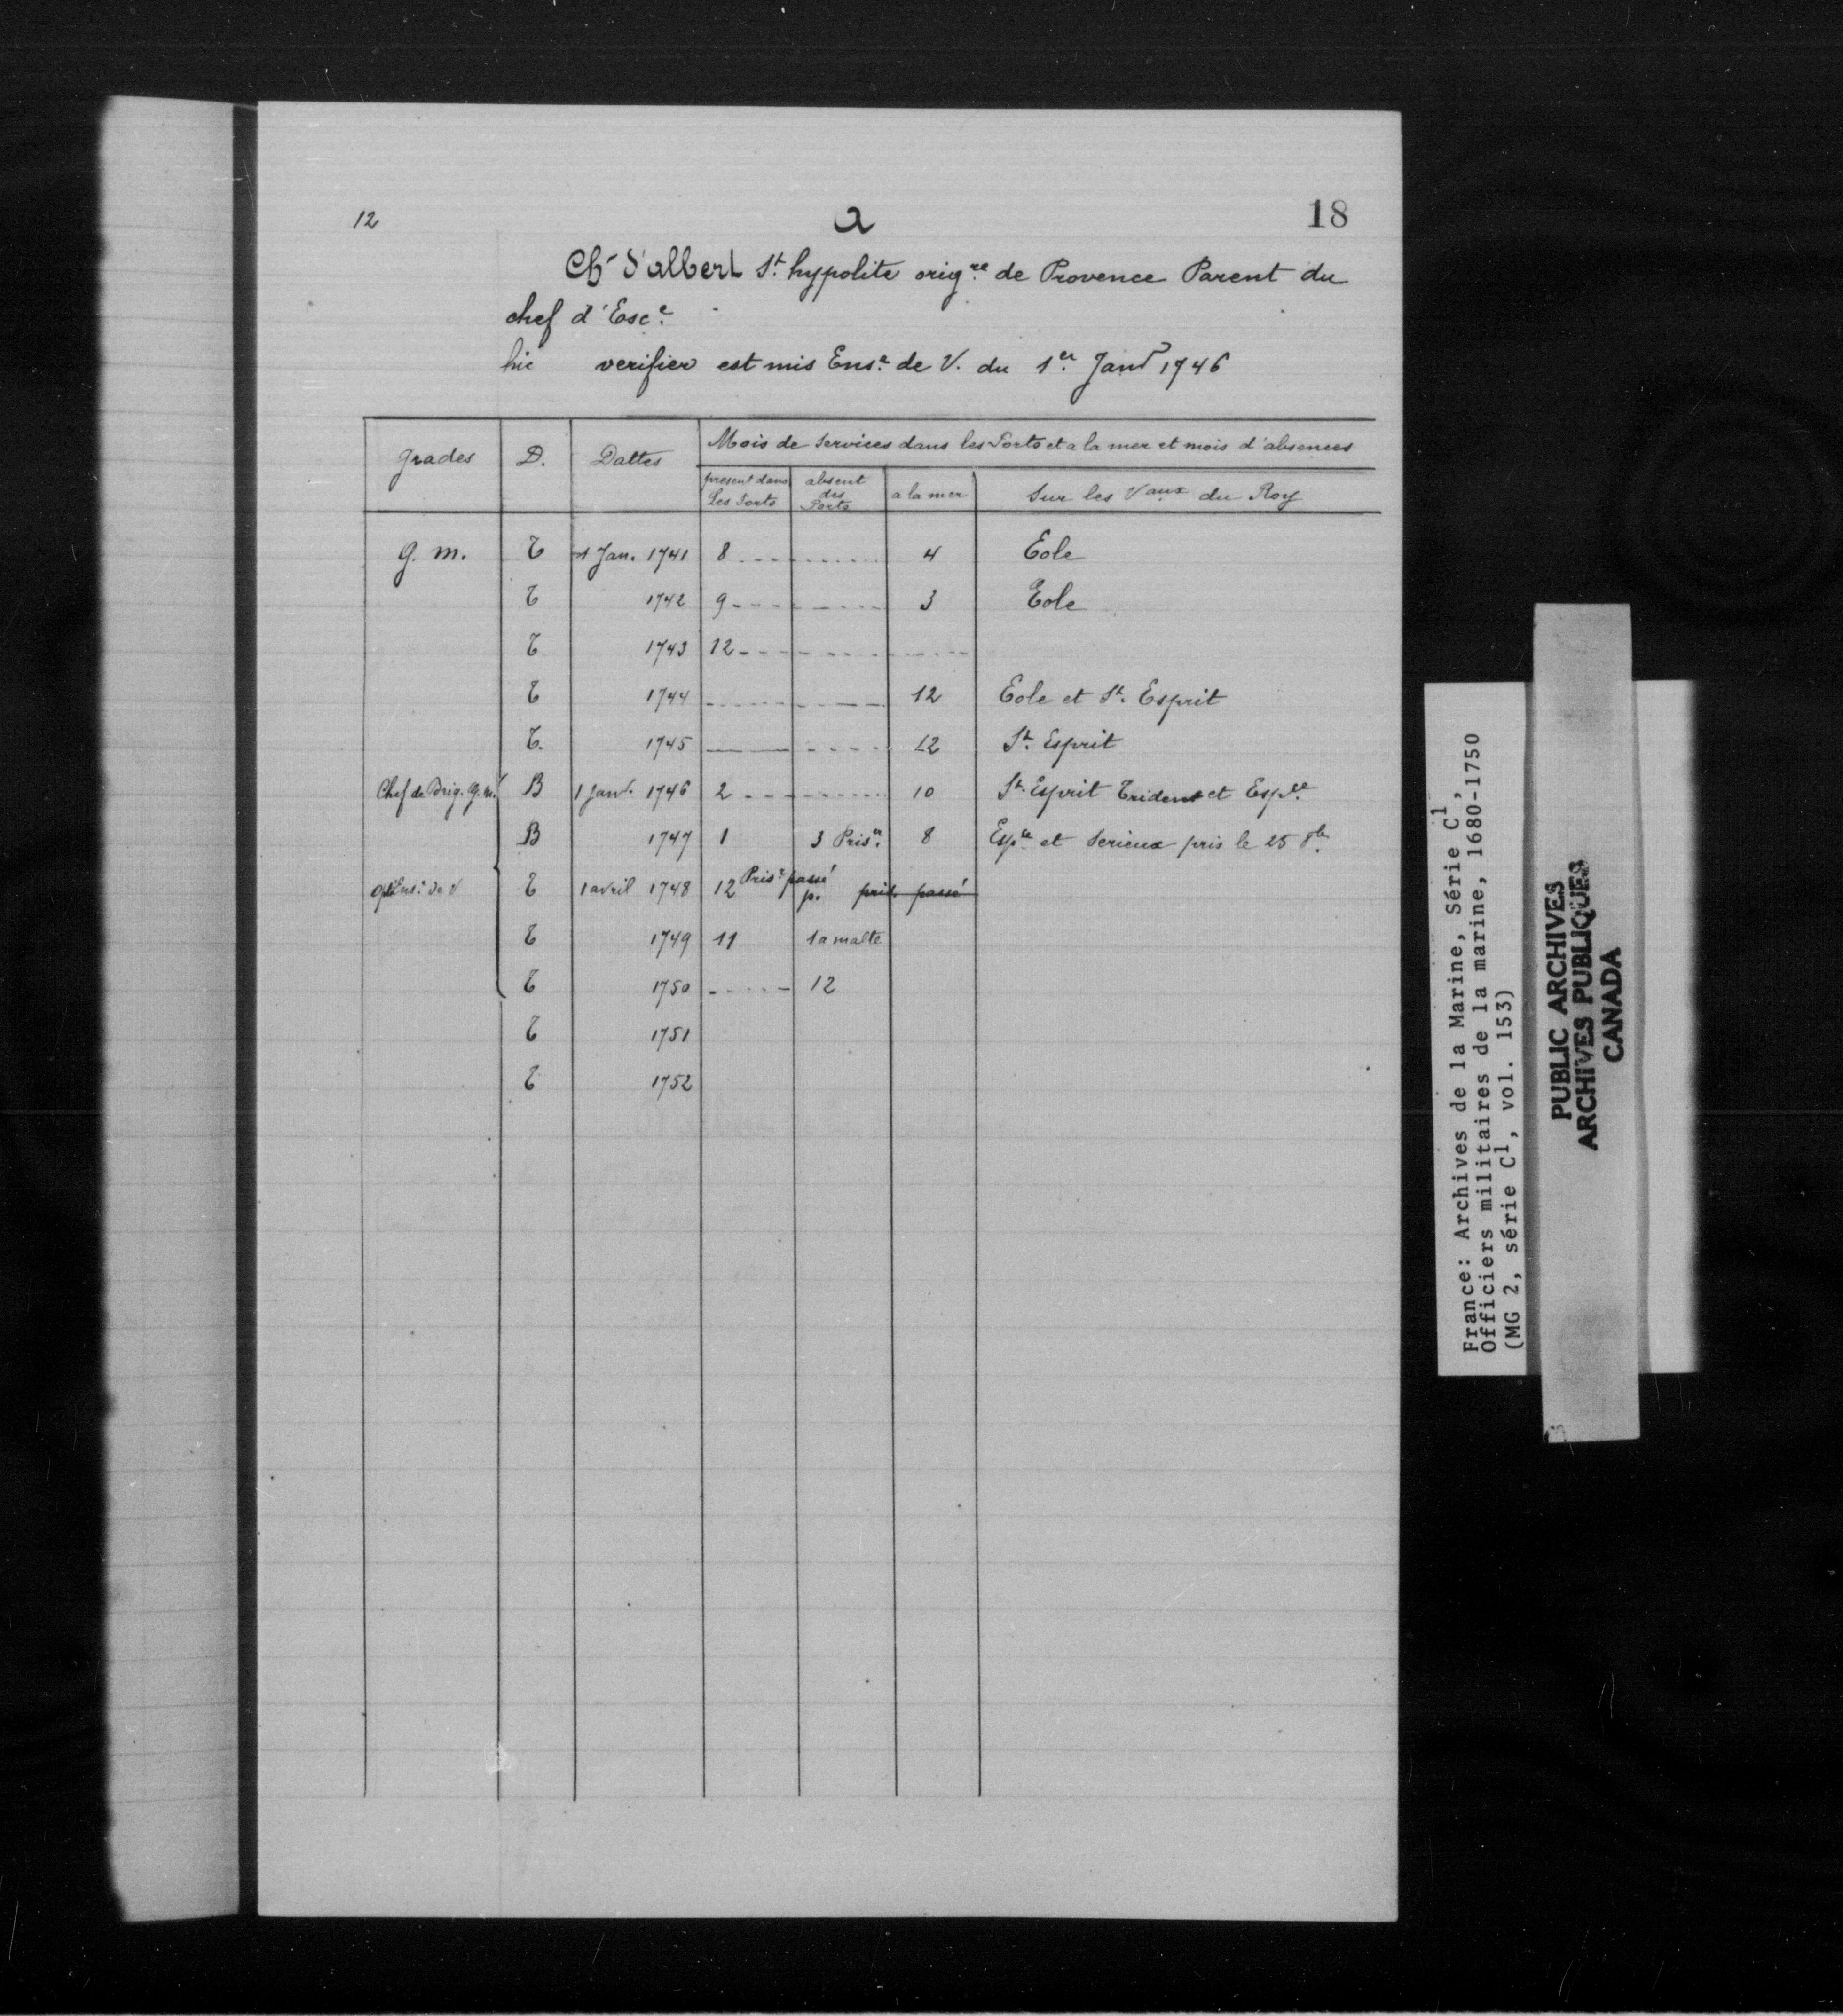 12 a 18
Chr d'albert St. hypolite origre de Provence Parent du
chef d'Esce
hic verifier est mis Ense de V. du 1er Janr 1746
Grades D. Dattes Mois de services dans les Ports et a la mer et mois d'absences
present dans Les Ports absent des Ports a la mer Sur les Vaux du Roy
G. m. T 1 Jan. 1741 8 4 Eole
T 1742 9 3 Eole
T 1743 12
T 1744 12 Eole et St. Esprit
T. 1745 12 St. Esprit
Chef de Brig. G. m. B 1 Janr. 1746 2 10 St. Esprit Trident et Espce
B 1747 1 3 Prisr. 8 Espce et Serieux pris le 25 8bre
Ense de V T 1 avril 1748 12 Prisr passé p. pris. passé
T 1749 11 1 a malte
T 1750 12
T 1751
T 1752
France: Archives de la Marine, Série C1,
Officiers militaires de la marine, 1680-1750
(MG 2, série C1, vol. 153)
PUBLIC ARCHIVES
ARCHIVES PUBLIQUES
CANADA